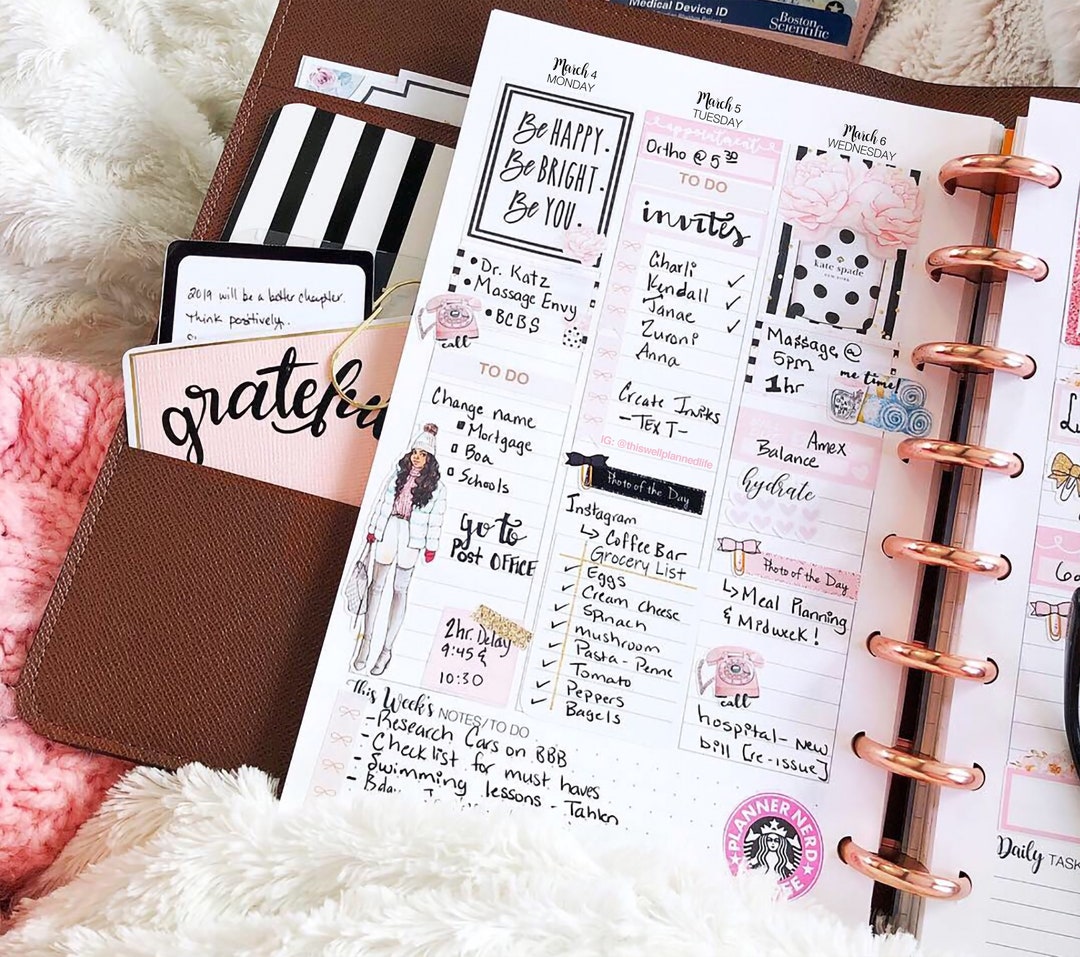 Medical Device ID
Boston
Scientific
2019 will be a better chapter.
Think positively.
grateful
March 4
MONDAY
Be HAPPY.
Be BRIGHT.
Be YOU.
Dr. Katz
Massage Envy
BCBS
call
TO DO
Change name
Mortgage
Boa
Schools
go to
Post OFFICE
2hr. Delay
9:45 &
10:30
This Week's NOTES/TO DO
- Research Cars on BBB
- Check list for must haves
- Swimming lessons - Tahlen
- Bday
March 5
TUESDAY
appointments
Ortho @ 5 30
TO DO
invites
Charli ✓
Kendall ✓
Janae ✓
Zurani
Anna
Create Invites
- TEXT -
IG: @thiswellplannedlife
Photo of the Day
Instagram
↳ Coffee Bar
Grocery List
✓ Eggs
✓ Cream cheese
✓ Spinach
✓ mushroom
✓ Pasta - Penne
✓ Tomato
✓ Peppers
✓ Bagels
March 6
WEDNESDAY
kate spade
NEW YORK
Massage @
5pm
1hr
me time!
Amex
Balance
hydrate
Photo of the Day
↳ Meal Planning
& Midweek!
call
hospital - new
bill [re-issue]
PLANNER NERD
Daily TASK